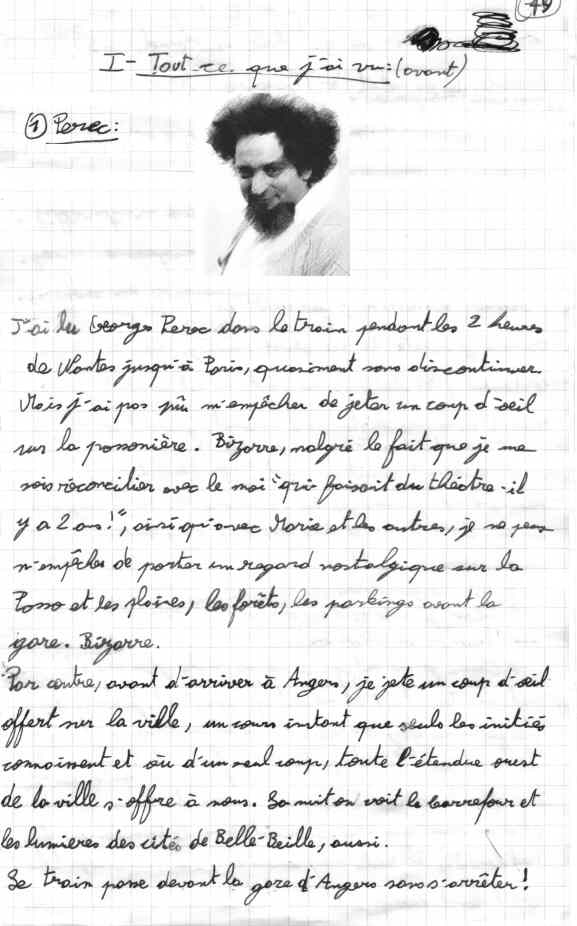 49
I- Tout ce que j'ai vu: (avant)
① Perec:
J'ai lu Georges Perec dans le train pendant les 2 heures
de Nantes jusqu'à Paris, quasiment sans discontinuer.
Mais j'ai pas pû m'empêcher de jeter un coup d'oeil
sur la possonière. Bizarre, malgré le fait que je me
sois réconcilier avec le moi "qui faisait du théâtre-il
y a 2 ans!", ainsi qu'avec Marie et les autres, je ne peux
m'empêcher de porter un regard nostalgique sur la
Posso et les plaines, les forêts, les parkings avant la
gare. Bizarre.
Par contre, avant d'arriver à Angers, je jete un coup d'œil
offert sur la ville, un cours instant que seuls les initiés
connaissent et où d'un seul coup, toute l'étendue ouest
de la ville s'offre à nous. La nuit on voit le carrefour et
les lumières des cités de Belle-Beille, aussi.
Le train passe devant la gare d'Angers sans s'arrêter!